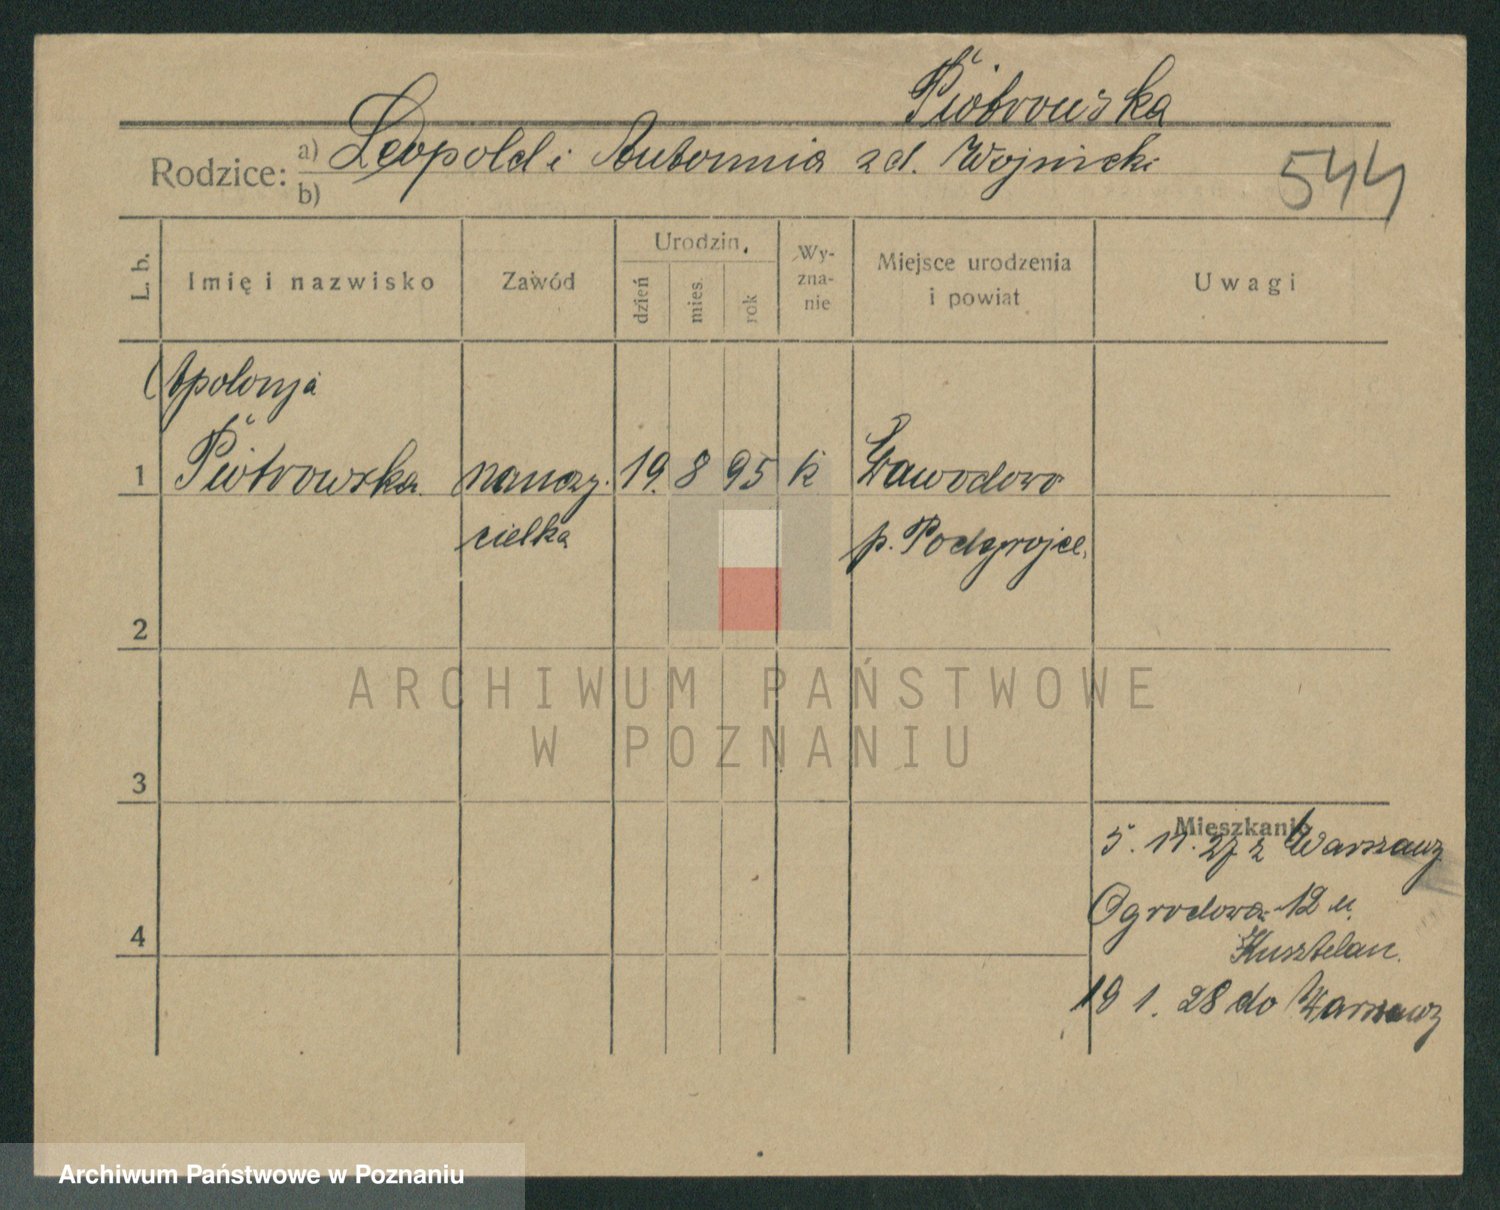 Piotrowska
Rodzice: a) Leopold i Antonnia zd. Wojnicki
b)
544
L. b. Imię i nazwisko Zawód Urodzin. dzień mies. rok Wy-zna-nie Miejsce urodzenia i powiat Uwagi
Apolonja
1 Piotrowska nauczy. 19. 8 95 k Zawodowo
cielka p. Podgrojce.
2
3
4
Mieszkanie
5. 11. 27 z Warszawy
Ogrodowa 12 u.
Kusztelan.
19 1. 28 do Warszawy
ARCHIWUM PAŃSTWOWE
W POZNANIU
Archiwum Państwowe w Poznaniu